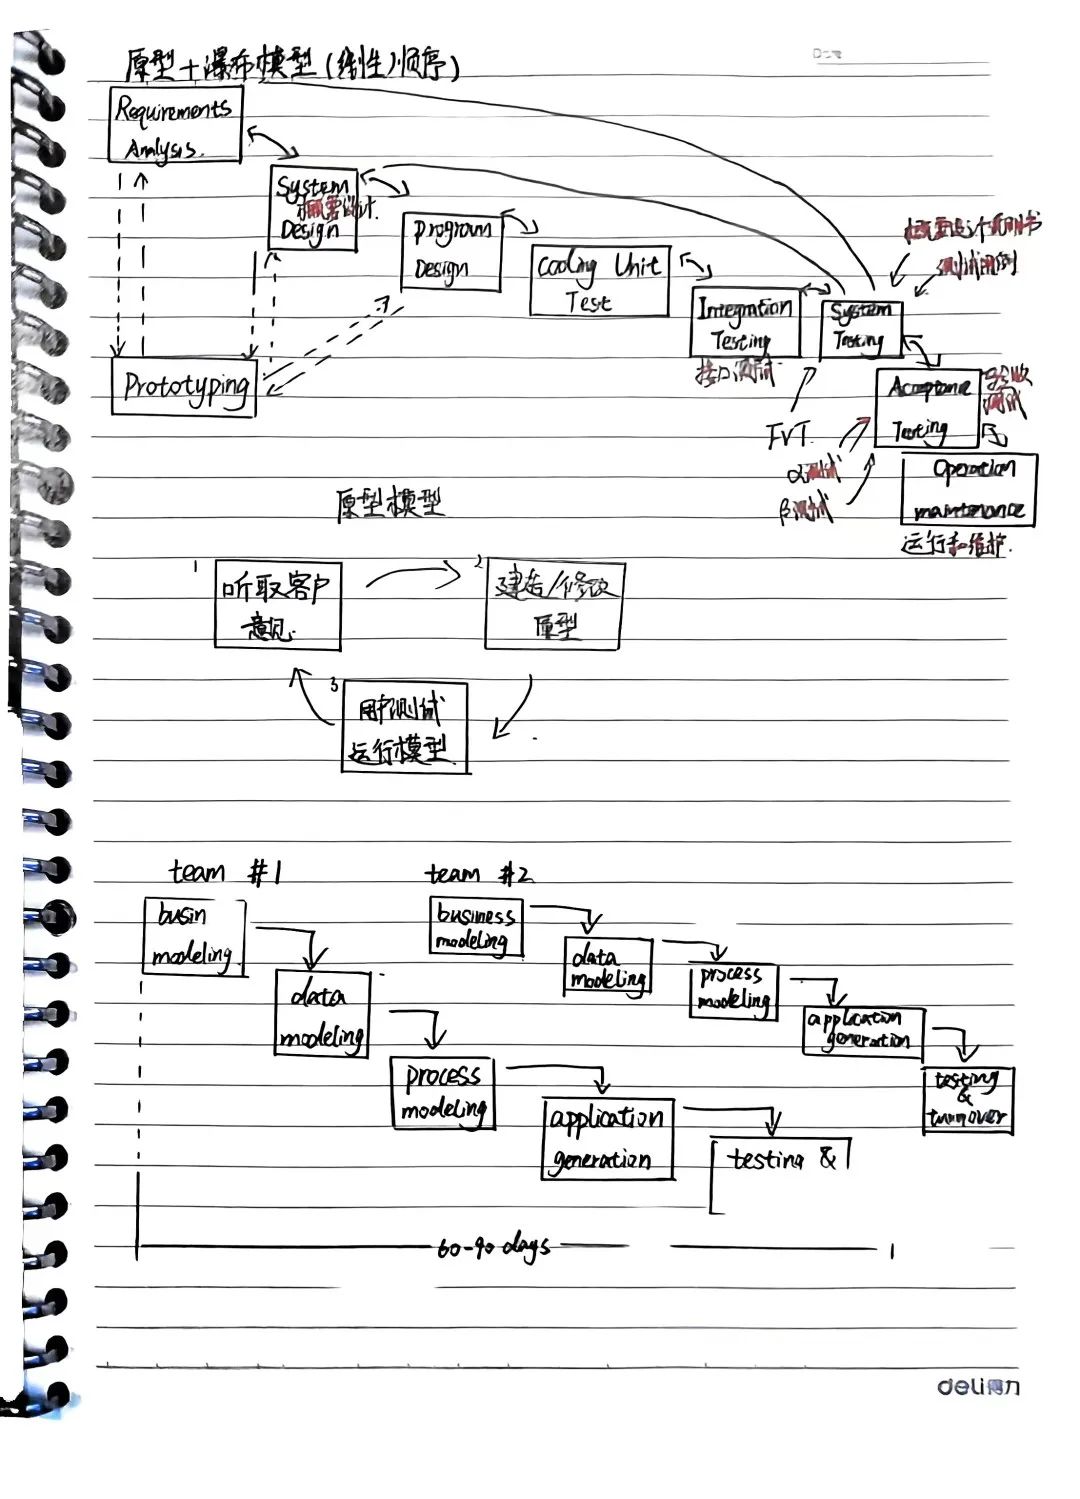 原型+瀑布模型(线性)顺序)
Requirements
Analysis.
System
概要设计.
Design
Program
Design
Coding Unit
Test
Integration
Testing
接口测试
System
Testing
概要设计说明书
测试用例
Prototyping
Acceptance
Testing
验收
测试
FVT
α测试
β测试
Operation
maintenance
运行和维护.
原型模型
1
听取客户
意见.
2
建造/修改
原型
3
用户测试
运行模型
team #1
busin
modeling.
data
modeling
process
modeling
application
generation
testing &
team #2
business
modeling
data
modeling
process
modeling
application
generation
testing
&
turnover
60-90 days
deli得力